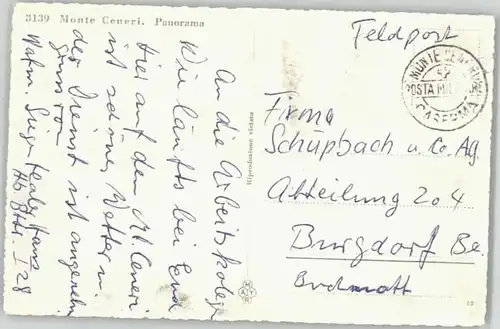 3139 Monte Ceneri. Panorama
An die Arbeitskolegen
Wie läufts bei Eend
Hier auf dem Mt. Ceneri
ist schönes Wetter u.
der Dienst ist angenehm
Gruss von
Hans
Hb Bttr. I 28
Riproduzione vietata
Feldpost
MONTE CENERI
POSTA MILITARE
CASERMA
Firma
Schüpbach u. Co. AG.
Abteilung 204
Burgdorf Be.
Buchmatt